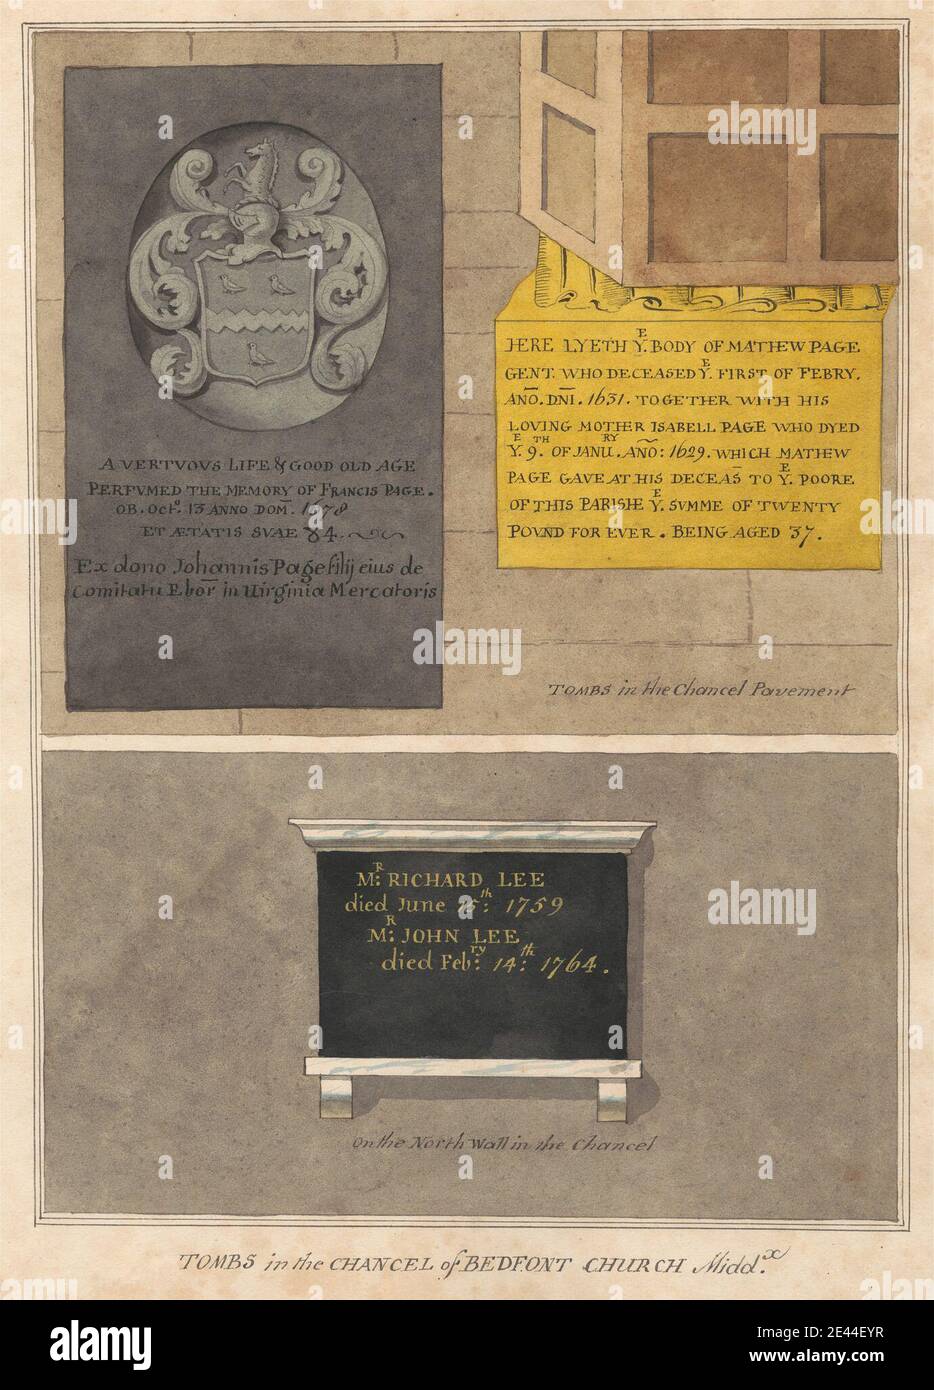 A VERTVOVS LIFE & GOOD OLD AGE
PERFVMED THE MEMORY OF FRANCIS PAGE.
OB. Octº. 13 ANNO DOM̄. 1678
ET ÆTATIS SVAE 84.
Ex dono Johannis Page filij eius de
Comitatu Ebor̄ in Uirginia Mercatoris
HERE LYETH Y.ᴱ BODY OF MATHEW PAGE
GENT. WHO DECEASED Y.ᴱ FIRST OF FEBRY.
AN̄O. DN̄I. 1631. TOGETHER WITH HIS
LOVING MOTHER ISABELL PAGE WHO DYED
Y.ᴱ 9.ᵀᴴ OF JANU.ᴿʸ AÑO: 1629. WHICH MATHEW
PAGE GAVE AT HIS DECEAS̄ TO Y.ᴱ POORE
OF THIS PARISHE Y.ᴱ SVMME OF TWENTY
POVND FOR EVER. BEING AGED 37.
TOMBS in the Chancel Pavement
M:ᴿ RICHARD LEE
died June 15:ᵗʰ 1759
M:ᴿ JOHN LEE
died Feb:ʳʸ 14:ᵗʰ 1764.
On the North Wall in the Chancel
TOMBS in the CHANCEL of BEDFONT CHURCH Midd.ˣ
alamy
alamy
alamy
alamy
Image ID: 2E44EYR
www.alamy.com